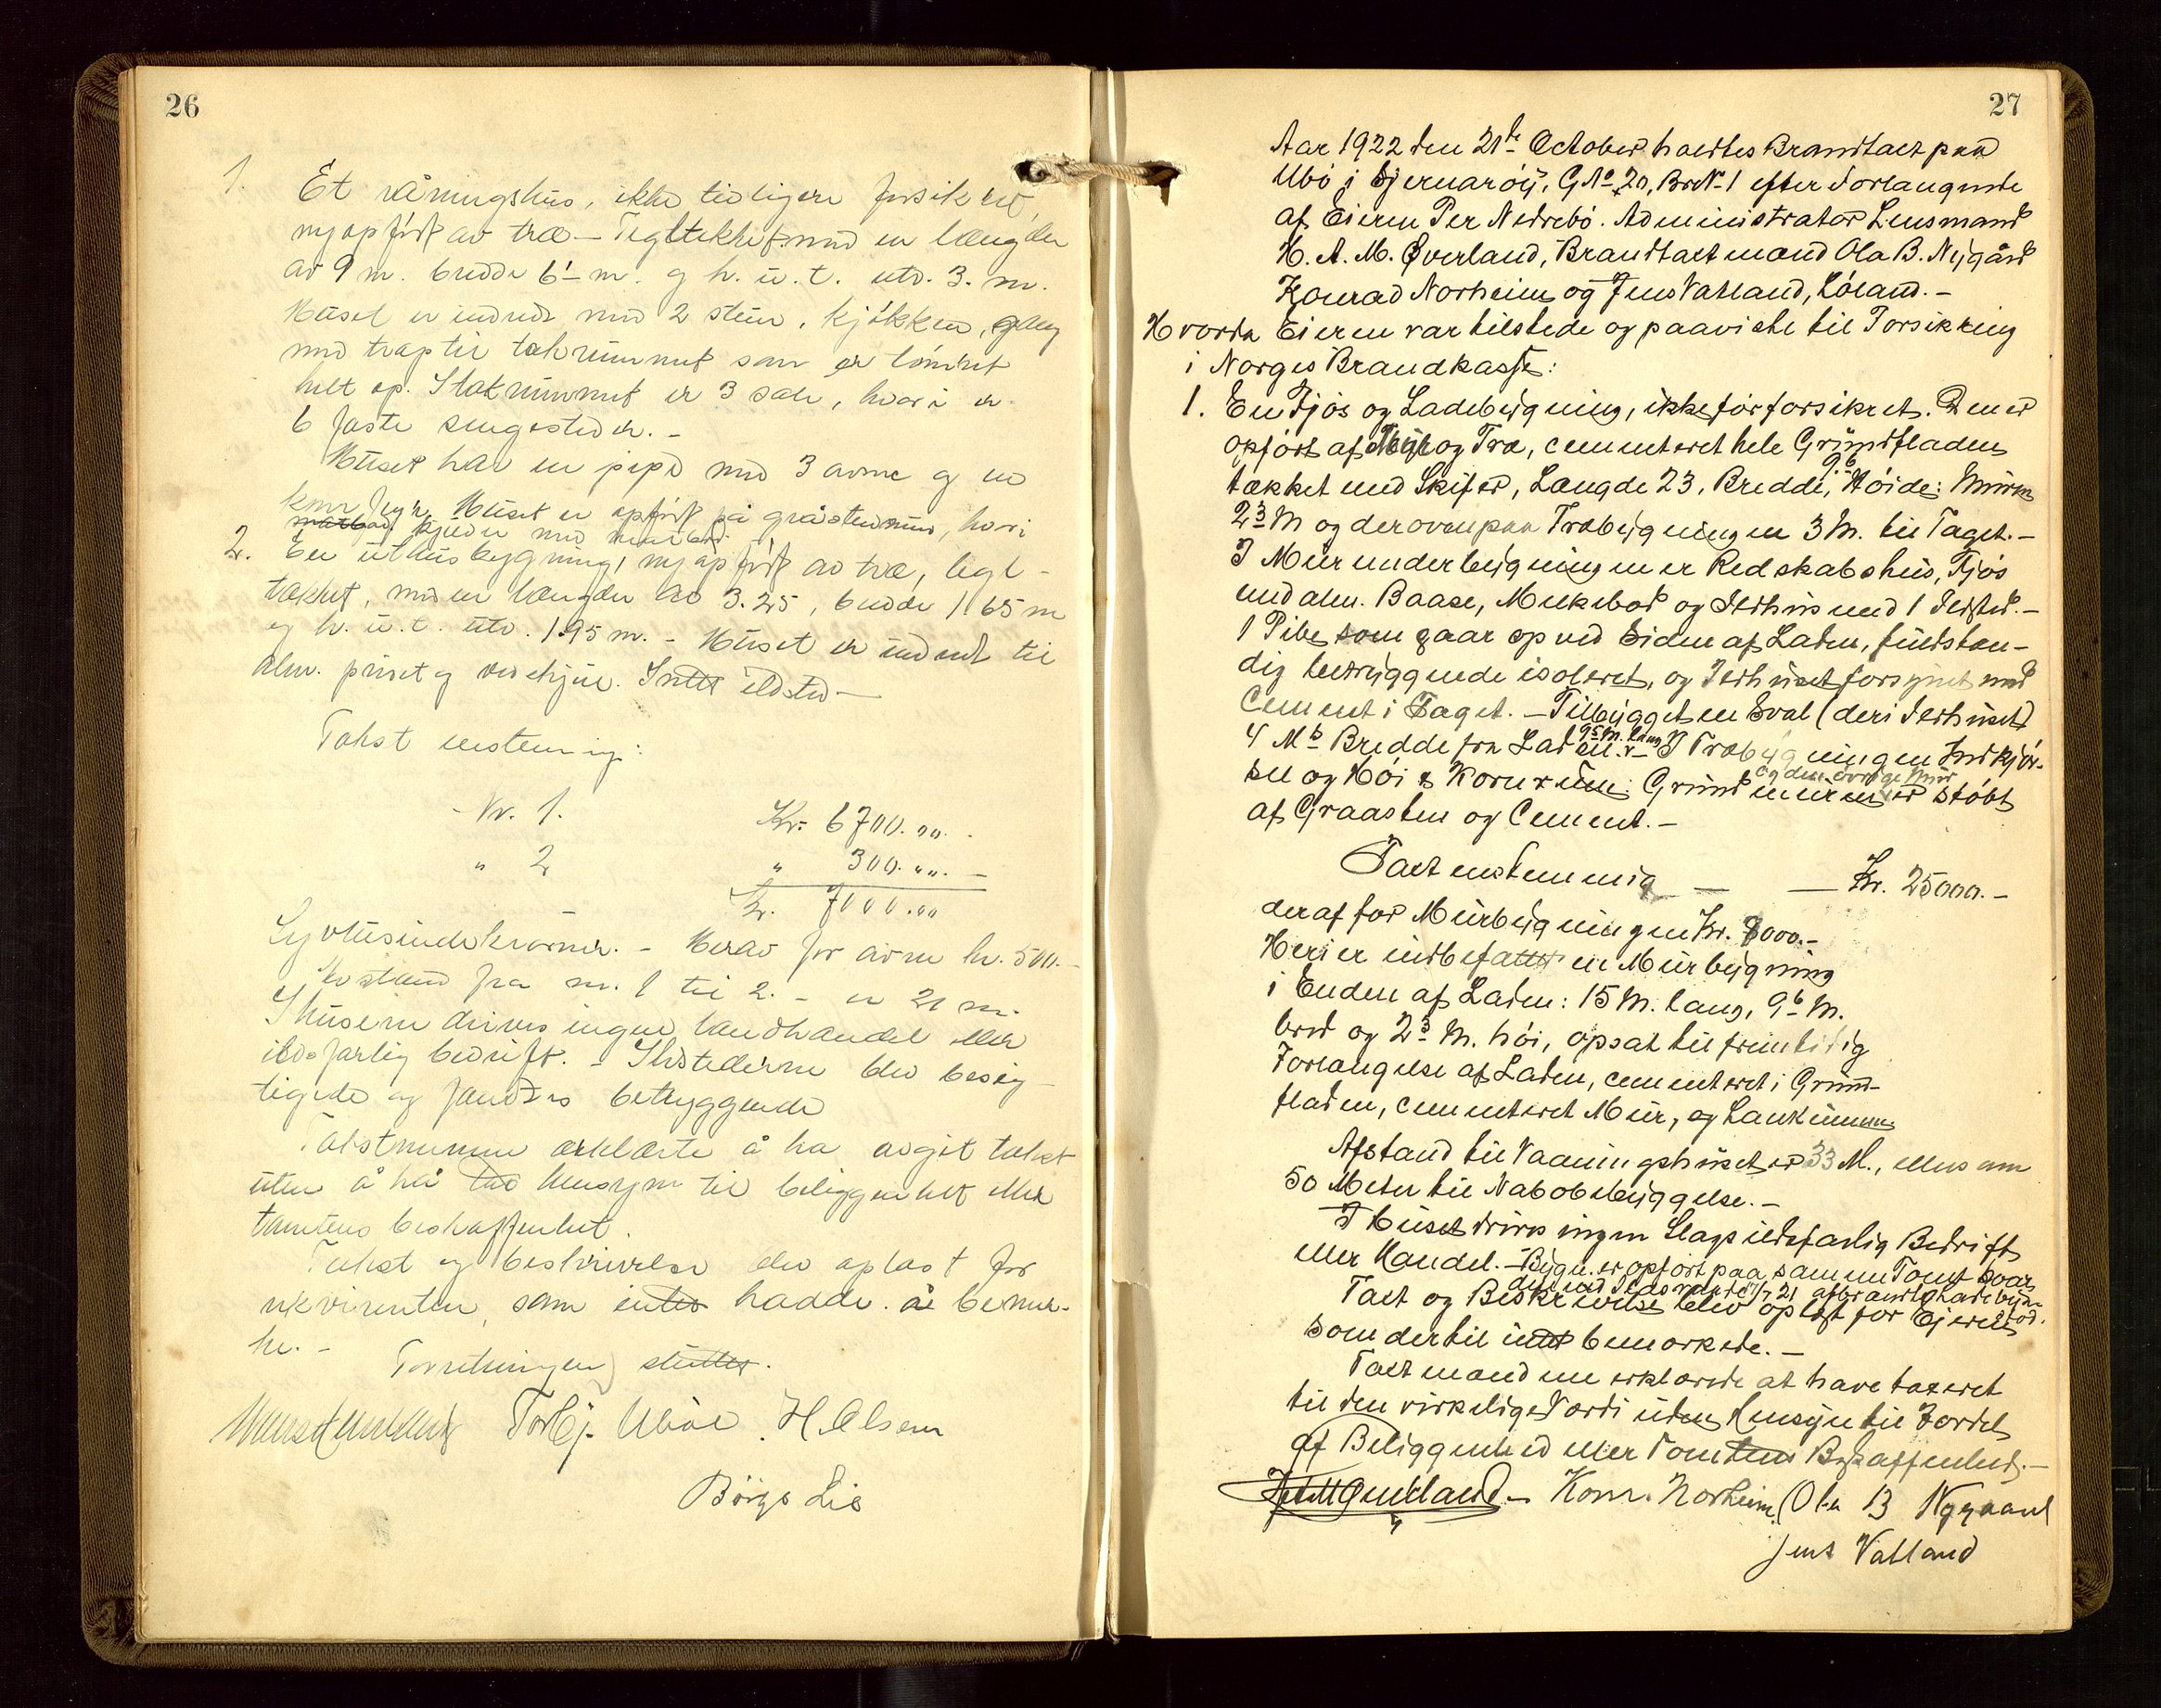 26
1. Et våningshus, ikke tidligere forsikret,
nyopført av træ – Teglstekket med en længde
av 9 m. bredde 6¹ m. og h. u. t. utv. 3. m.
Huset er indredt med 2 stuer, kjøkken, gang
med trap til takrummet som er tømret
helt op. I takrummet er 3 sale, hvori er
6 faste sengesteder. –
Huset har en pipe med 3 arme og en
Huset er opført på gråstensmur, hvori
kjelder med
2. En uthusbygning, nyopført av træ, tegl-
tækket, med en længde av 3.25, bredde 1 65 m
og h. u. t. utv. 1.95 m. – Huset er indredt til
alm. privet og vedskjul. Intet ildsted –
Takst enstemmig:
Nr. 1. Kr. 6700.00. -
" 2 " 300.00. –
Kr. 7000.00
Syvtusindekroner. – Herav for avne kr. 500. –
Avstand fra nr. 1 til 2. – er 21 m.
I husene drives ingen landhandel eller
ildsfarlig bedrift. – Ildstederne blev besig-
tigede og fandtes betryggende
Takstmennene erklærte å ha avgit takst
uten å ha tat hensyn til beliggenhet eller
tomtens beskaffenhet.
Takst og beskrivelse blev oplæst for
rekvirenten, som intet hadde å bemer-
ke. – Forretningen sluttet.
Torbj. Ubøe . H. Olsen
Børge Lie
27
Aar 1922 den 21de October holdtes Brandtaxt paa
Ubø i Sjernarøy, GNo 20, BrN-1 efter Forlangende
af Eieren Per Nedrebø. Administrator Lensmand
H. A. M. Øverland, Brandtaxtmænd Ola B. Nygård
Konrad Norheim og Jens Valland, Løland. –
Hvorda Eieren var tilstede og paaviste til Forsikring
i Norges Brandkasse:
1. En Fjøs og Ladebygning, ikke før forsikret. Den er
opført af Mur og Træ, cementeret hele Grundfladen
9.6
tækket med Skifer, Længde 23, Bredde, Høide: Muren
2³ M og derovenpaa Træbygningen 3 M. til Taget. –
I Murunderbygningen er Redskabshus, Fjøs
med alm. Baase, Melkebod og Ildhus med 1 Ildsted. –
1 Pibe som gaar op ved Siden af Laden, fuldstæn-
dig betryggende isoleret, og Ildhuset forsynet med
Cement i Taget. – Tilbygget en Sval (deri Ildhuset)
9⁵ M. lang
4 Mtr Bredde fra Laden. – I Træbygningen Indkjør-
og den øvrige Mur
sel og Høi & Kornrum: Grundmuren er støbt
af Graasten og Cement. –
Taxt enstemmig — — Kr. 25000. –
deraf for Murbygningen Kr. 8000. –
Heri er indbefattet en Murbygning
i Enden af Laden: 15 M. lang, 9⁶ M.
bred og 2³ M. høi, opsat til fremtidig
Forlængelse af Laden, cementeret i Grund-
fladen, cementeret Mur, og Landkummen
Afstand til Vaaningshuset er 33 M., ellers om
50 Meter til Nabobebyggelse. –
I Huset drives ingen Slags ildsfarlig Bedrift
eller Handel. – Bygn. er opført paa samme Tomt hvor
den ved Ildsvaade 21 afbrændte Ladebygn. stod.
Taxt og Beskrivelse blev oplæst for Ejeren
som dertil intet bemærkede. –
Taxtmændene erklærede at have taxeret
til den virkelige Værdi uden Hensyn til Fordel
af Beliggenhed eller Tomtens Beskaffenhed. –
Konr. Norheim. Ola B Nygaard
Jens Valland